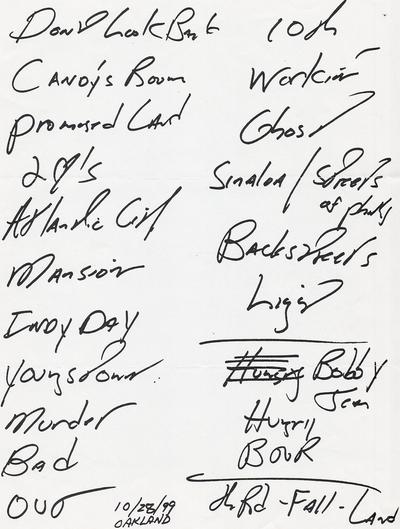 Don't Look Back
Candy's Room
Promised Land
2 ♥'s
Atlantic City
Mansion
Indy Day
Youngstown
Murder
Bad
Out
10/28/99
OAKLAND
10th
Workin'
Ghost
Sinaloa / Streets
of philly
Backstreets
Light
Hungry Bobby
Jean
Hungry
th Rd - Fall - Land